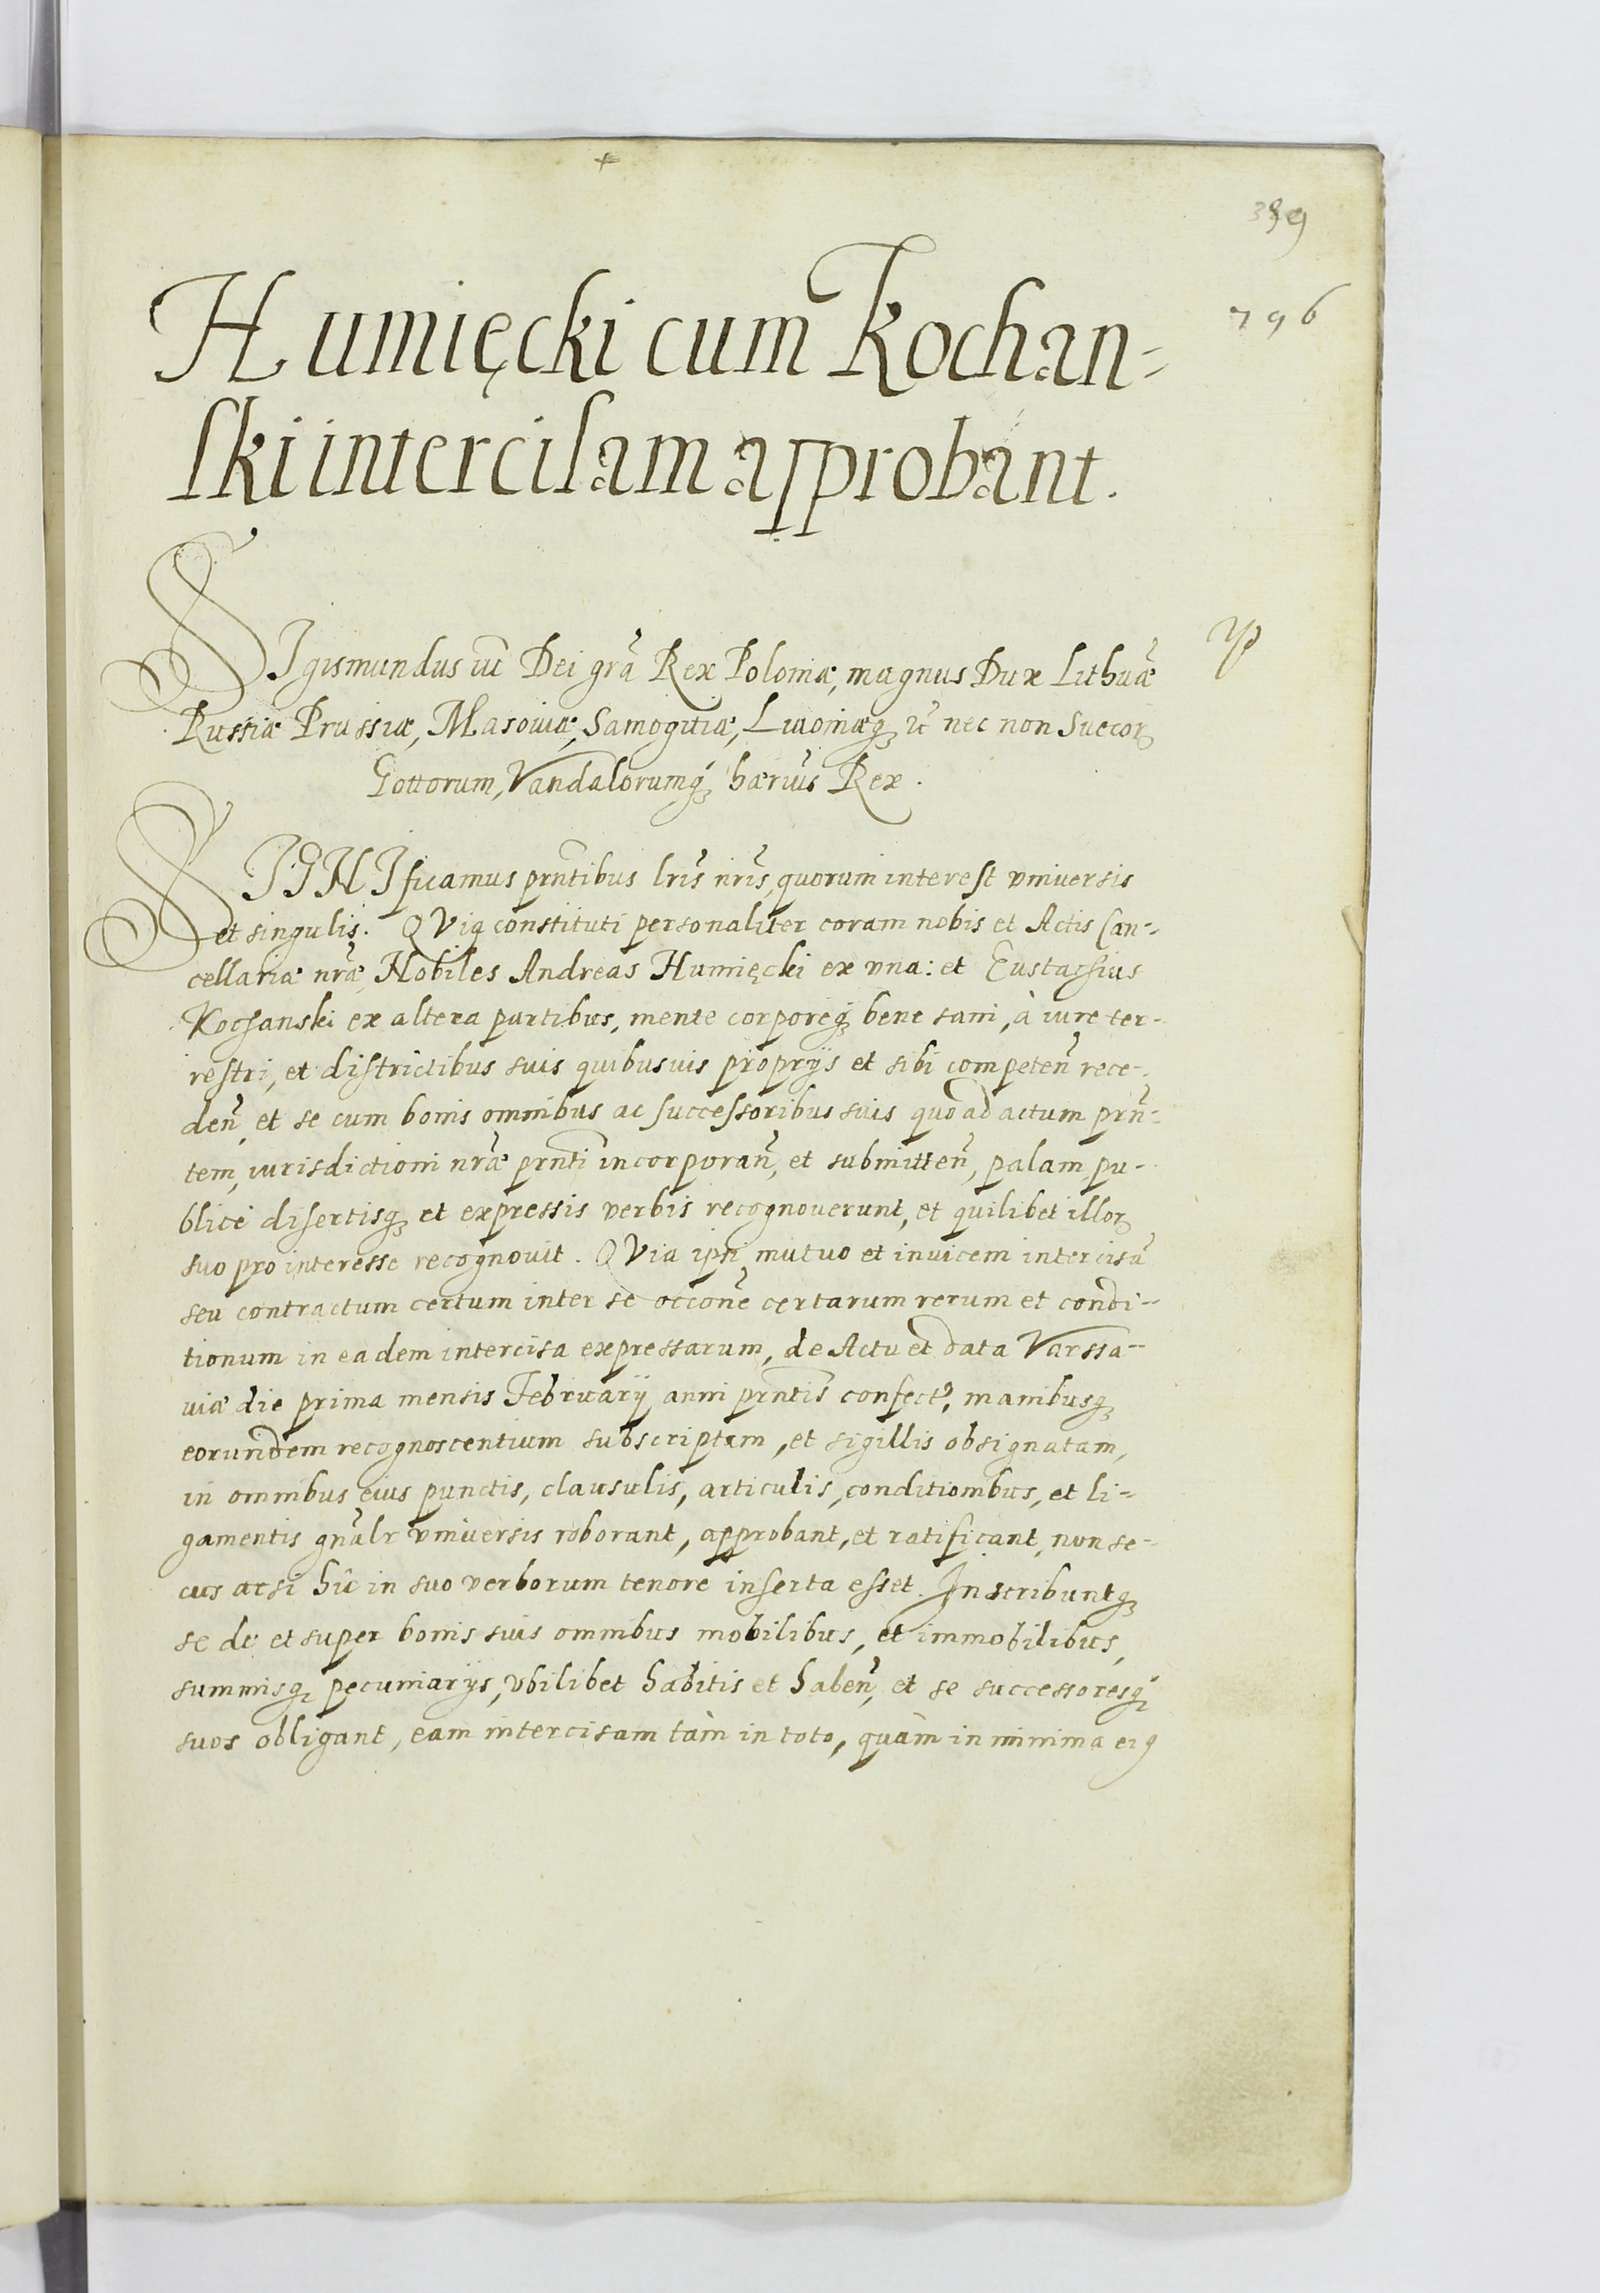 389
796
Humięcki cum Kochan-
ski intercisam approbant.
SIgismundus iii Dei grã Rex Poloniæ, magnus Dux Lithuæ
Russiæ Prussiæ, Masouiæ, Samogitiæ, Liuoniæq nec non Suecor
Gottorum, Vandalorumq hærius Rex.
SIGNIficamus prntibus lris nris, quorum interest vniuersis
et singulis. QVia constituti personaliter coram nobis et Actis Can-
cellariæ nræ, Nobiles Andreas Humięcki ex vna: et Eustachius
Kochanski ex altera partibus, mente corporeq bene sani, à iure ter-
restri, et districtibus suis quibusuis proprijs et sibi competeñ rece-
deñ, et se cum bonis omnibus ac successoribus suis quo ad actum prñ-
tem, iurisdictioni nræ prnti incorporañ, et submitteñ, palam pu-
blicè disertisq et expressis verbis recognouerunt, et quilibet illor
suo pro interesse recognouit. QVia ipsi mutuo et inuicem intercisã
seu contractum certum inter se occõne certarum rerum et condi-
tionum in eadem intercisa expressarum, de Actu et data Varssa-
uiæ die prima mensis February anni prntis confect, manibusq
eorundem recognoscentium subscriptam, et sigillis obsignatam,
in omnibus eius punctis, clausulis, articulis, conditionibus, et li-
gamentis gñalr vniuersis roborant, approbant, et ratificant, non se-
cus ac si hîc in suo verborum tenore inserta esset. Inscribuntq
se de et super bonis suis omnibus mobilibus, et immobilibus,
summisq pecuniarys, vbilibet habitis et habeñ, et se successoresq
suos obligant, eam intercisam tàm in toto, quàm in minima ei9